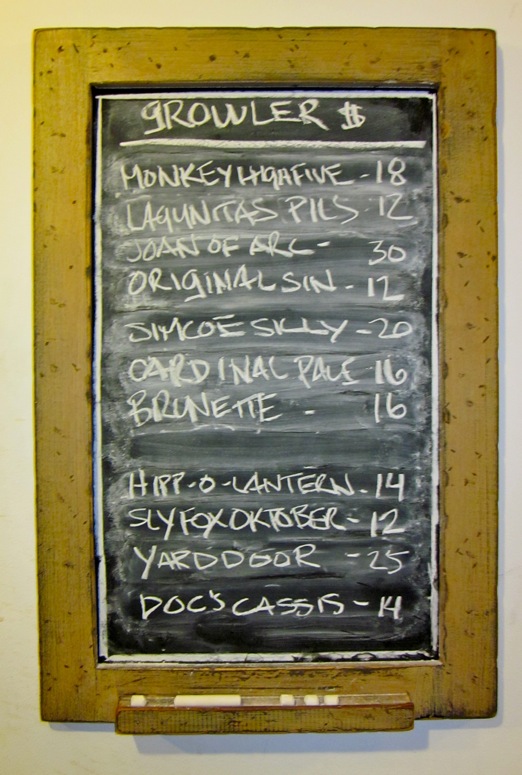 GROWLER $
MONKEY HIGHFIVE - 18
LAGUNITAS PILS 12
JOAN OF ARC - 30
ORIGINAL SIN - 12
SIMCOE SILLY - 20
CARDINAL PALE 16
BRUNETTE - 16
HIPP-O-LANTERN - 14
SLYFOX OKTOBER - 12
YARD DOOR - 25
DOC'S CASSIS - 14